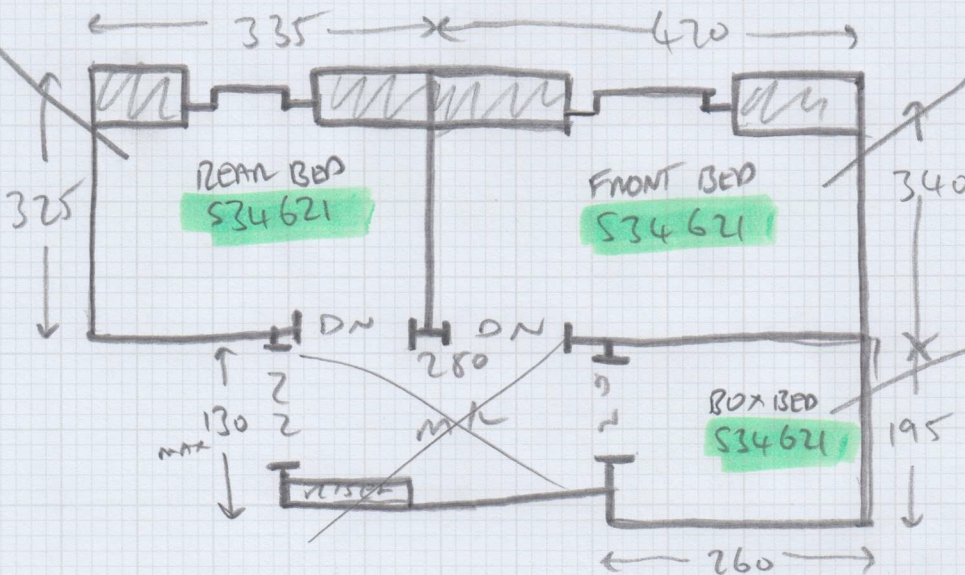 335 420
REAR BED
S34621
FRONT BED
S34621
325
340
DN
DN
280
130
MAX
BOX BED
S34621
195
260